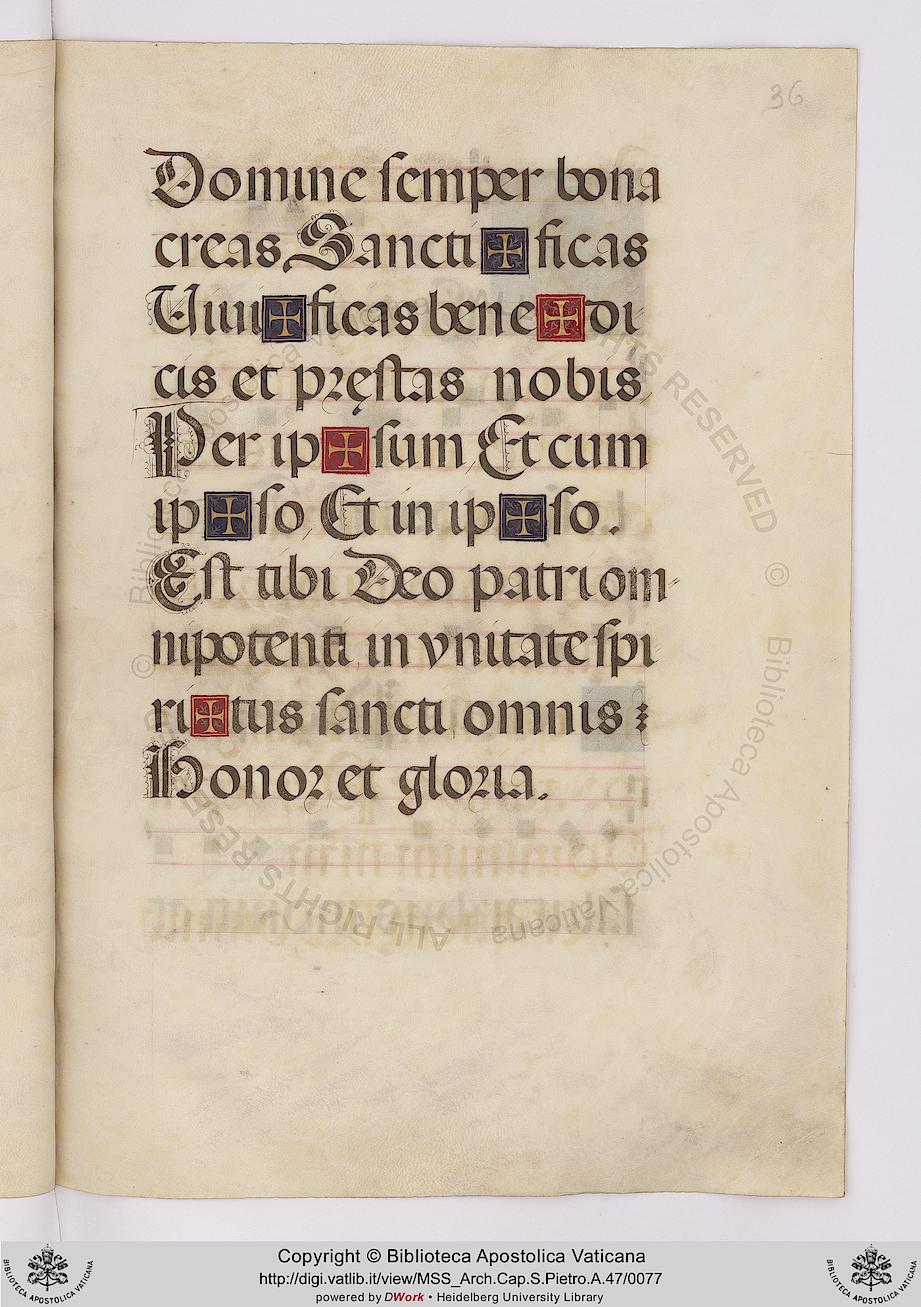 36
Domine semper bona
creas Sancti ✠ ficas
Viui ✠ ficas bene ✠ di
cis et pręstas nobis
Per ip ✠ sum, Et cum
ip ✠ so, Et in ip ✠ so.
Est tibi Deo patri om-
nipotenti, in vnitate spi
ri ✠ tus sancti, omnis :
Honor et gloria.
© Biblioteca Apostolica Vaticana ALL RIGHTS RESERVED
© Biblioteca Apostolica Vaticana ALL RIGHTS RESERVED
Copyright © Biblioteca Apostolica Vaticana
http://digi.vatlib.it/view/MSS_Arch.Cap.S.Pietro.A.47/0077
powered by DWork • Heidelberg University Library
BIBLIOTECA APOSTOLICA VATICANA
BIBLIOTECA APOSTOLICA VATICANA